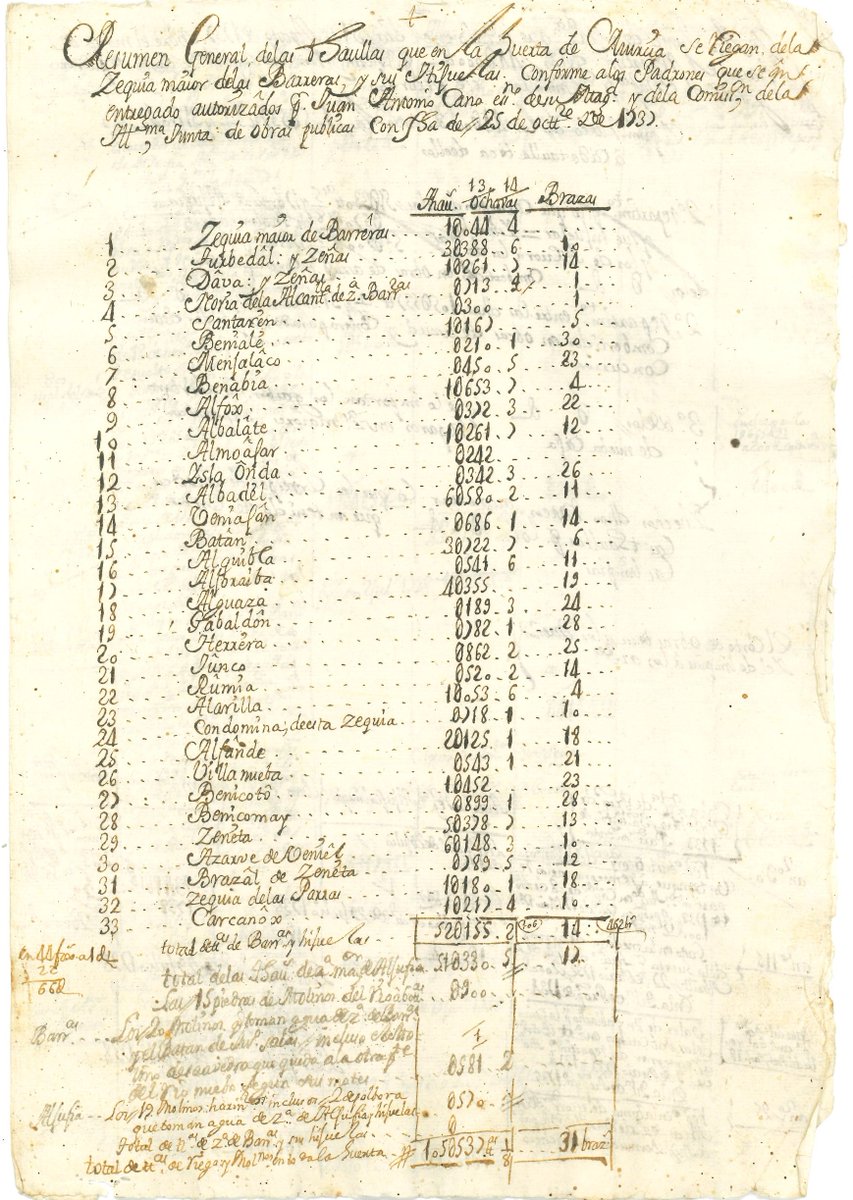 Resumen General, delas thaullas que en la huerta de Murcia se Riegan, dela
Zequia maior delas Barreras, y sus Hijuelas. Conforme alos Padrones que se an
entregado autorizados Juan Antonio Cano y dela dela
Junta de obras publicas con fha de 25 de octt.e de 1737.
thau.s 13 . 14 Ochavas Brazas
1 Zequia maior de Barreras 10.44 4
2 Turbedâl: y Zeñas 30388 6 10
3 Dâva: y Zeñas 10261 7 14
4 Noria dela Alcant.a de z.a Barr.as 0713 2 1
5 Santarén 0300 1
6 Beniale 10167 5
7 Menjalâco 0210 1 30
8 Benabia 0450 5 23
9 Alfox 10653 7 4
10 Albalâte 0372 3 22
11 Almoâjar 10261 7 12
12 Isla Onda 0242
13 Albadêl 0342 3 26
14 Beniafan 60580 2 11
15 Batân 0686 1 14
16 Alquibla 30722 7 6
17 Alforaiba 0541 6 11
18 Alguaza 40355 19
19 Gabaldôn 0189 3 24
20 Herrera 0782 1 28
21 Junco 0862 2 25
22 Rumia 0520 2 14
23 Alarilla 10.53 6 4
24 Condomina, de esta Zequia 0718 1 10
25 Alfande 20125 1 18
26 Villanueba 0543 1 21
27 Benicotô 10452 23
28 Benicomay 0899 1 28
29 Zeneta 50378 7 13
30 Azarve de Beniêl 60148 3 10
31 Brazâl de Zenêta 0789 5 12
32 Zequia delas Parras 10180 1 18
33 Carcanôx 10217 4 10
total de t.as de Barr.as y hijuelas 520155 2 14
en 44
22
668
total delas thau.s de z.a ma. de Aljufia 510330 5 17
Las 15 piedras de Molinos del Rio 0900
Barr.as Los 20 Molinos q toman agua de z.a de Barr.as
y el Batan de
que queda ala otra p.te
del rio 0581 2
Aljufia Los 19 Molinos inclusos 2 de polbora
que toman agua de z.a de Aljufia y hijuelas 0570
total de t.as de z.a de Barr.as y sus hijuelas
total de tt.as de riego y Molinos enla huerta 1050537 1/8 31 braz.s